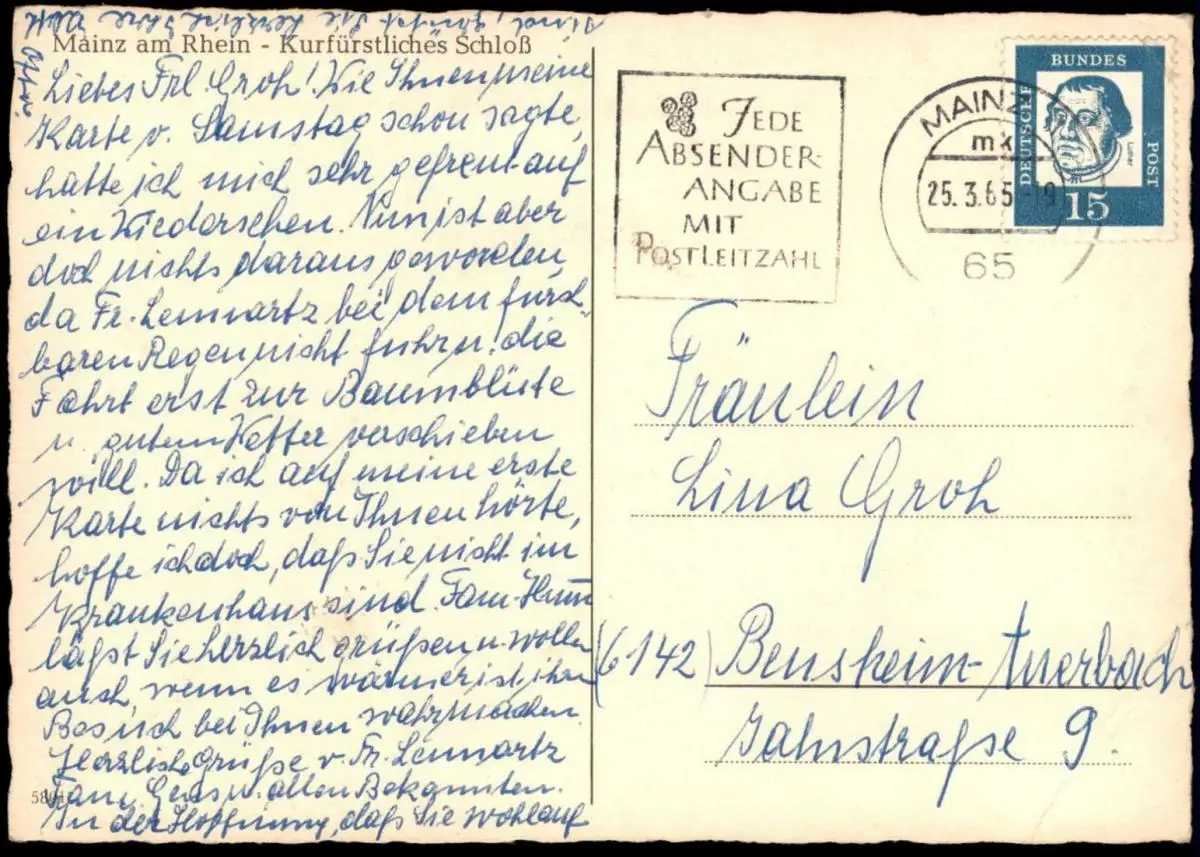 Mainz am Rhein - Kurfürstliches Schloß
Liebes Frl. Groh! Wie Ihnen meine
Karte v. Samstag schon sagte,
hatte ich mich sehr gefreut auf
ein Wiedersehen. Nun ist aber
doch nichts daraus geworden,
da Fr. Lennartz bei dem furcht-
baren Regen nicht fuhr u. die
Fahrt erst zur Baumblüte
u. gutem Wetter verschieben
will. Da ich auf meine erste
Karte nichts von Ihnen hörte,
hoffe ich doch, daß Sie nicht im
Krankenhaus sind. Fam.
läßt Sie herzlich grüßen u. wollen
auch, wenn es wärmer ist ihren
Besuch bei Ihnen wahrmachen.
Herzliche Grüße v. Fr. Lennartz
Fam. u. allen Bekannten.
In der Hoffnung, daß Sie wohlauf
sind, grüßt Sie herzlich Ihre
JEDE
ABSENDER-
ANGABE
MIT
POSTLEITZAHL
MAINZ
mx
25.3.65-19
65
DEUTSCHE
BUNDES
POST
Luther
15
Fräulein
Lina Groh
(6142) Bensheim-Auerbach
Jahnstraße 9.